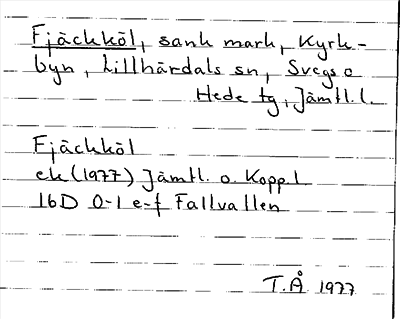 Fjäckköl, sank mark, Kyrk-
byn, Lillhärdals sn, Svegs o
Hede tg, Jämtl.l.
Fjäckköl
ek (1977) Jämtl. o. Kopp.l
16D 0-1 e-f Fallvallen
T.Å 1977